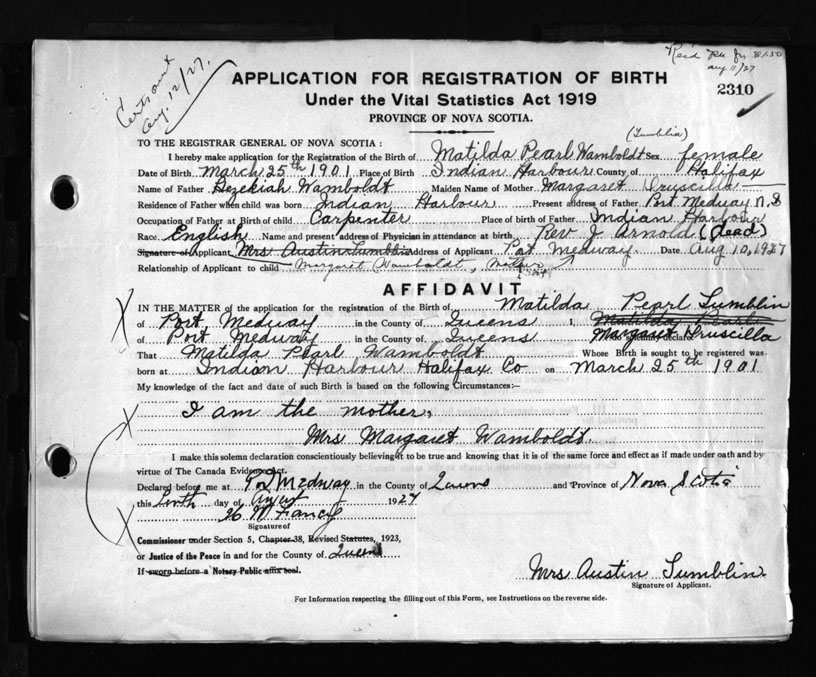 Rec'd $1.50
Aug 11/27
Cert sent
Aug. 12/27.
APPLICATION FOR REGISTRATION OF BIRTH
2310
Under the Vital Statistics Act 1919
PROVINCE OF NOVA SCOTIA.
TO THE REGISTRAR GENERAL OF NOVA SCOTIA:
(Tumblin)
I hereby make application for the Registration of the Birth of Matilda Pearl Wamboldt Sex female
Date of Birth March 25th 1901 Place of Birth Indian Harbour County of Halifax
Name of Father Hezekiah Wamboldt Maiden Name of Mother Margaret Druscilla
Residence of Father when child was born Indian Harbour Present address of Father Port Medway N.S
Occupation of Father at Birth of child Carpenter Place of birth of Father Indian Harbour
Race English Name and present address of Physician in attendance at birth Rev J. Arnold (dead)
Signature of Applicant Mrs Austin Tumblin Address of Applicant Port Medway Date Aug 10, 1927
Relationship of Applicant to child Margaret Wamboldt, Mother
AFFIDAVIT
IN THE MATTER of the application for the registration of the Birth of Matilda Pearl Tumblin
of Port Medway in the County of Queens I, Matilda Pearl
of Port Medway in the County of Queens Margaret Druscilla
That Matilda Pearl Wamboldt Whose Birth is sought to be registered was
born at Indian Harbour Halifax Co on March 25th 1901
My knowledge of the fact and date of such Birth is based on the following Circumstances:-
I am the mother,
Mrs Margaret Wamboldt.
I make this solemn declaration conscientiously believing it to be true and knowing that it is of the same force and effect as if made under oath and by
virtue of The Canada Evidence Act.
Declared before me at Port Medway in the County of Queens and Province of Nova Scotia
this tenth day of August 1927
Fancy
Signature of
Commissioner under Section 5, Chapter 38, Revised Statutes, 1923,
or Justice of the Peace in and for the County of Queens
If sworn before a Notary Public affix seal.
Mrs Austin Tumblin.
Signature of Applicant.
For Information respecting the filling out of this Form, see Instructions on the reverse side.